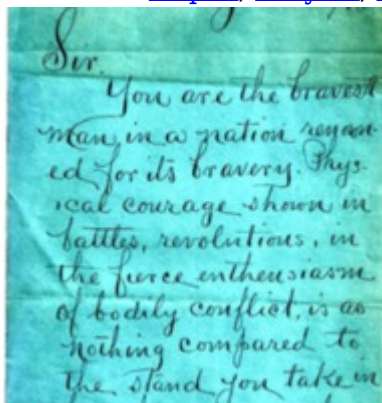 Sir.
You are the bravest
man in a nation renown-
ed for its bravery. Phys-
ical courage shown in
battles, revolutions, in
the fierce enthusiasm
of bodily conflict, is as
nothing compared to
the stand you take in